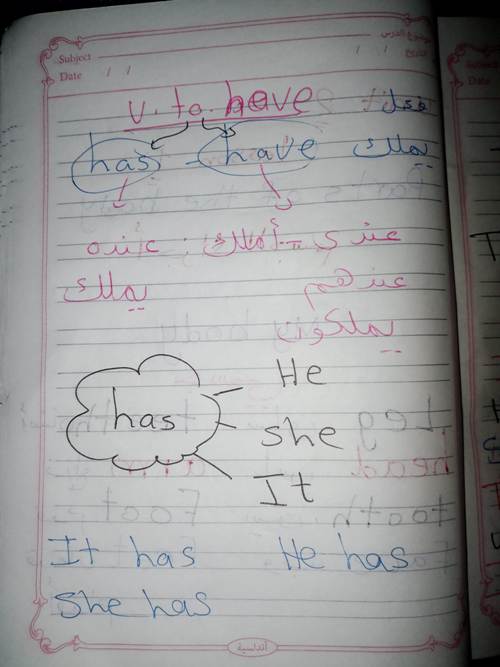 Subject موضوع الدرس
Date / / / / التاريخ
v. to have فعل
has - have يملك
عندي - أملك : عنده
عندهم يملك
يملكون
has
He
she
It
It has He has
She has